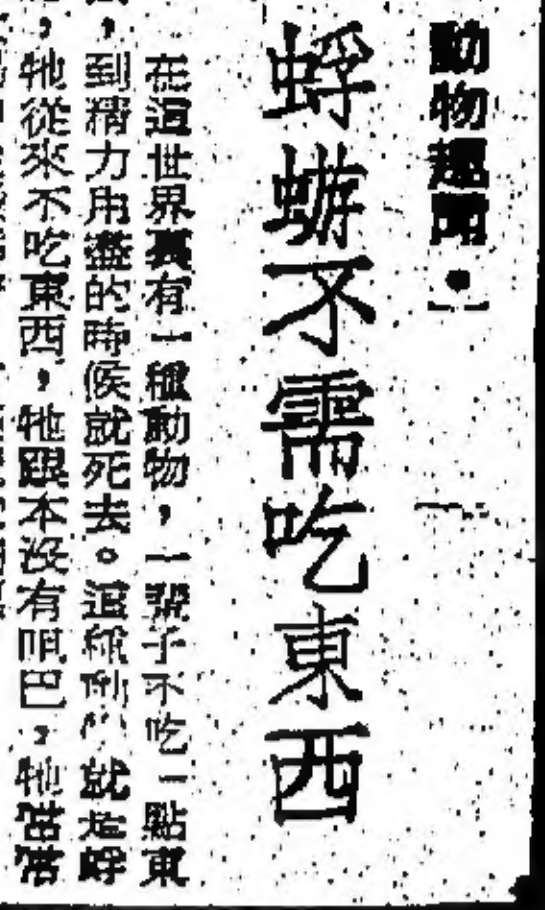 動物趣聞·
蜉蝣不需吃東西
在這世界裏有一種動物，一輩子不吃一點東
，到精力用盡的時候就死去。這種動物就是蜉
，牠從來不吃東西，牠跟本沒有咀巴，牠